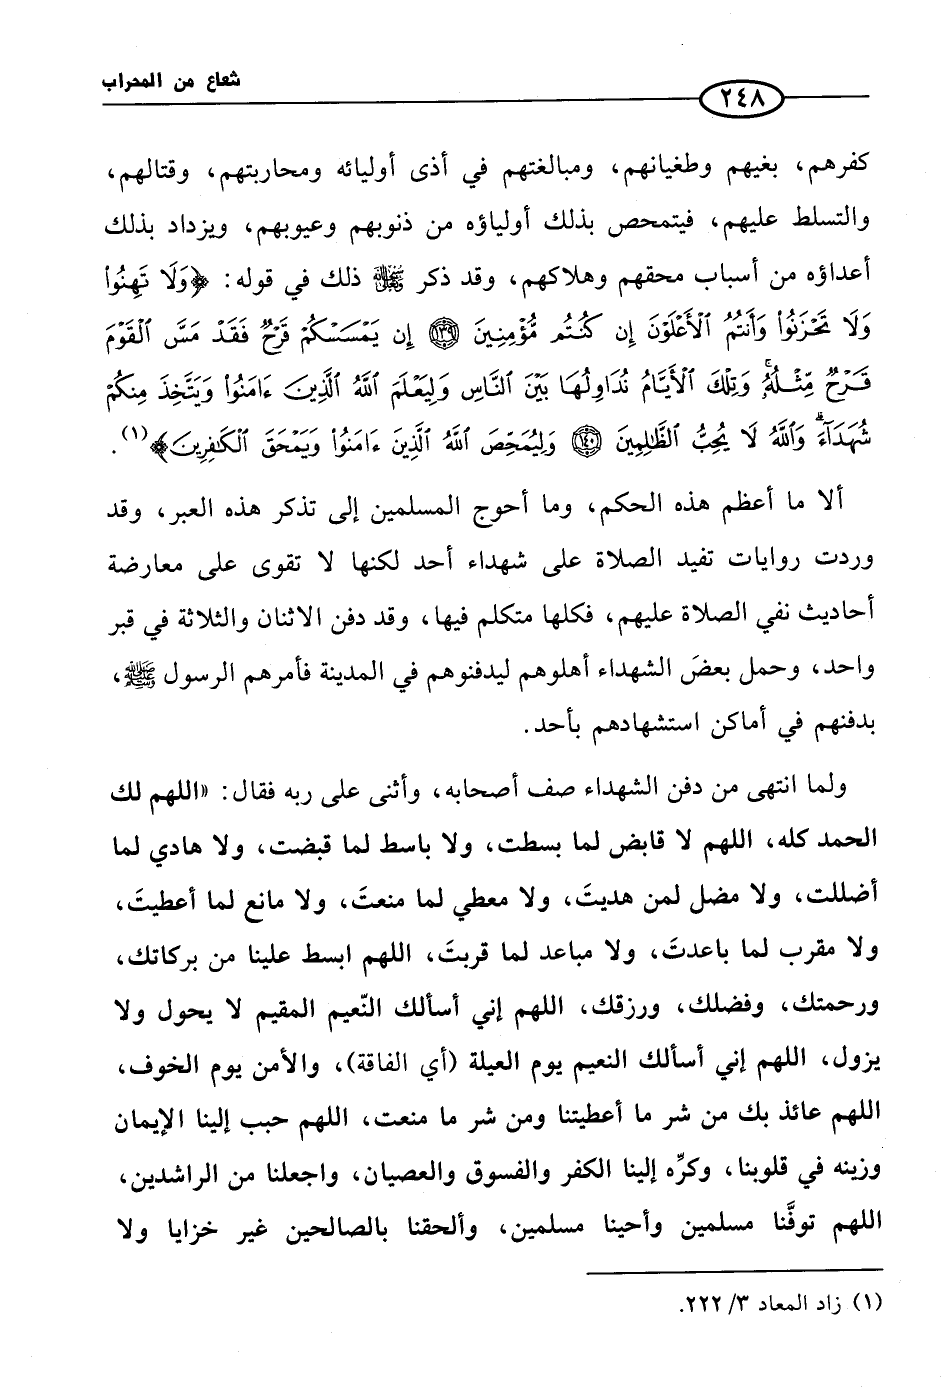 شعاع من المحراب
٢٤٨
كفرهم، بغيهم وطغيانهم، ومبالغتهم في أذى أوليائه ومحاربتهم، وقتالهم،
والتسلط عليهم، فيتمحص بذلك أولياؤه من ذنوبهم وعيوبهم، ويزداد بذلك
أعداؤه من أسباب محقهم وهلاكهم، وقد ذكر ﷾ ذلك في قوله: ﴿وَلَا تَهِنُوا۟
وَلَا تَحْزَنُوا۟ وَأَنتُمُ ٱلْأَعْلَوْنَ إِن كُنتُم مُّؤْمِنِينَ ۝١٣٩ إِن يَمْسَسْكُمْ قَرْحٌ فَقَدْ مَسَّ ٱلْقَوْمَ
قَرْحٌ مِّثْلُهُۥ ۚ وَتِلْكَ ٱلْأَيَّامُ نُدَاوِلُهَا بَيْنَ ٱلنَّاسِ وَلِيَعْلَمَ ٱللَّهُ ٱلَّذِينَ ءَامَنُوا۟ وَيَتَّخِذَ مِنكُمْ
شُهَدَآءَ ۗ وَٱللَّهُ لَا يُحِبُّ ٱلظَّٰلِمِينَ ۝١٤٠ وَلِيُمَحِّصَ ٱللَّهُ ٱلَّذِينَ ءَامَنُوا۟ وَيَمْحَقَ ٱلْكَٰفِرِينَ﴾(١).
ألا ما أعظم هذه الحكم، وما أحوج المسلمين إلى تذكر هذه العبر، وقد
وردت روايات تفيد الصلاة على شهداء أحد لكنها لا تقوى على معارضة
أحاديث نفي الصلاة عليهم، فكلها متكلم فيها، وقد دفن الاثنان والثلاثة في قبر
واحد، وحمل بعضَ الشهداء أهلوهم ليدفنوهم في المدينة فأمرهم الرسول ﷺ،
بدفنهم في أماكن استشهادهم بأحد.
ولما انتهى من دفن الشهداء صف أصحابه، وأثنى على ربه فقال: «اللهم لك
الحمد كله، اللهم لا قابض لما بسطت، ولا باسط لما قبضت، ولا هادي لما
أضللت، ولا مضل لمن هديتَ، ولا معطي لما منعتَ، ولا مانع لما أعطيتَ،
ولا مقرب لما باعدتَ، ولا مباعد لما قربتَ، اللهم ابسط علينا من بركاتك،
ورحمتك، وفضلك، ورزقك، اللهم إني أسألك النّعيم المقيم لا يحول ولا
يزول، اللهم إني أسألك النعيم يوم العيلة (أي الفاقة)، والأمن يوم الخوف،
اللهم عائذ بك من شر ما أعطيتنا ومن شر ما منعت، اللهم حبب إلينا الإيمان
وزينه في قلوبنا، وكرِّه إلينا الكفر والفسوق والعصيان، واجعلنا من الراشدين،
اللهم توفَّنا مسلمين وأحينا مسلمين، وألحقنا بالصالحين غير خزايا ولا
(١) زاد المعاد ٣/ ٢٢٢.